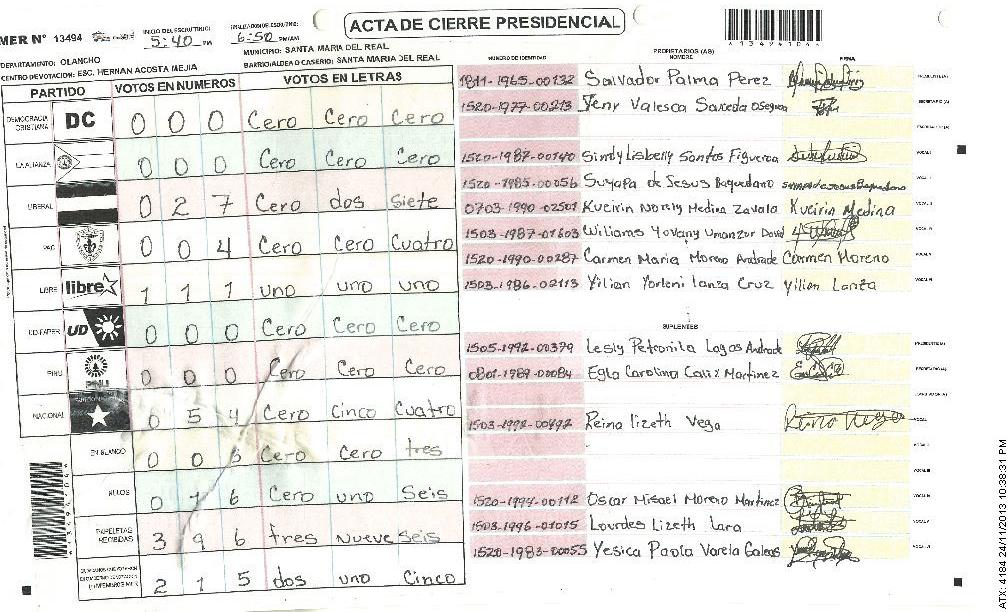 ACTA DE CIERRE PRESIDENCIAL
MER N° 13494
INICIO DEL ESCRUTINIO: 5:40 PM
FINALIZACION DE ESCRUTINIO: 6:50 PM/AM
DEPARTAMENTO: OLANCHO
MUNICIPIO: SANTA MARIA DEL REAL
CENTRO DE VOTACION: ESC. HERNAN ACOSTA MEJIA
BARRIO/ALDEA O CASERIO: SANTA MARIA DEL REAL
PARTIDO VOTOS EN NUMEROS VOTOS EN LETRAS
DEMOCRACIA CRISTIANA DC 0 0 0 Cero Cero Cero
LA ALIANZA 0 0 0 Cero Cero Cero
LIBERAL 0 2 7 Cero dos siete
PAC 0 0 4 Cero Cero Cuatro
LIBRE libre 1 1 1 uno uno uno
UD-FAPER UD 0 0 0 Cero Cero Cero
PINU PINU 0 0 0 Cero Cero Cero
NACIONAL 0 5 4 Cero Cinco Cuatro
EN BLANCO 0 0 3 Cero Cero tres
NULOS 0 1 6 Cero uno Seis
PAPELETAS RECIBIDAS 3 9 6 tres nueve seis
2 1 5 dos uno Cinco
PROPIETARIOS (AS)
NUMERO DE IDENTIDAD NOMBRE FIRMA
1811-1965-00132 Salvador Palma Perez PRESIDENTE (A)
1520-1977-00213 Jeny Valesca Sauceda Oseguera SECRETARIO (A)
ESCRUTADOR (A)
1520-1987-00140 Sindy Lisbeny Santos Figueroa VOCAL I
1520-1985-00056 Suyapa de Jesus Baquedano Suyapa de Jesus Baquedano VOCAL II
0703-1990-02501 Kueirin Norsly Medina Zavala Kueirin Medina VOCAL III
1503-1987-01603 Wiliams Yovany Umanzor David VOCAL IV
1520-1990-00287 Carmen Maria Moreno Andrade Carmen Moreno VOCAL V
1503-1986-02113 Yilian Yorleni Lanza Cruz Yilian Lanza VOCAL VI
SUPLENTES
1505-1992-00379 Lesly Petronila Lagos Andrade PRESIDENTE (A)
0801-1989-00084 Egla Carolina Caliz Martinez SECRETARIO (A)
ESCRUTADOR (A)
1503-1992-00492 Reina lizeth Vega Reina Vega VOCAL I
VOCAL II
VOCAL III
1520-1994-00112 Oscar Misael Moreno Martinez VOCAL IV
1503-1996-01015 Lourdes Lizeth Lara VOCAL V
1520-1983-00055 Yesica Paola Varela Galeas VOCAL VI
ATX: 4184 24/11/2013 10:38:31 PM